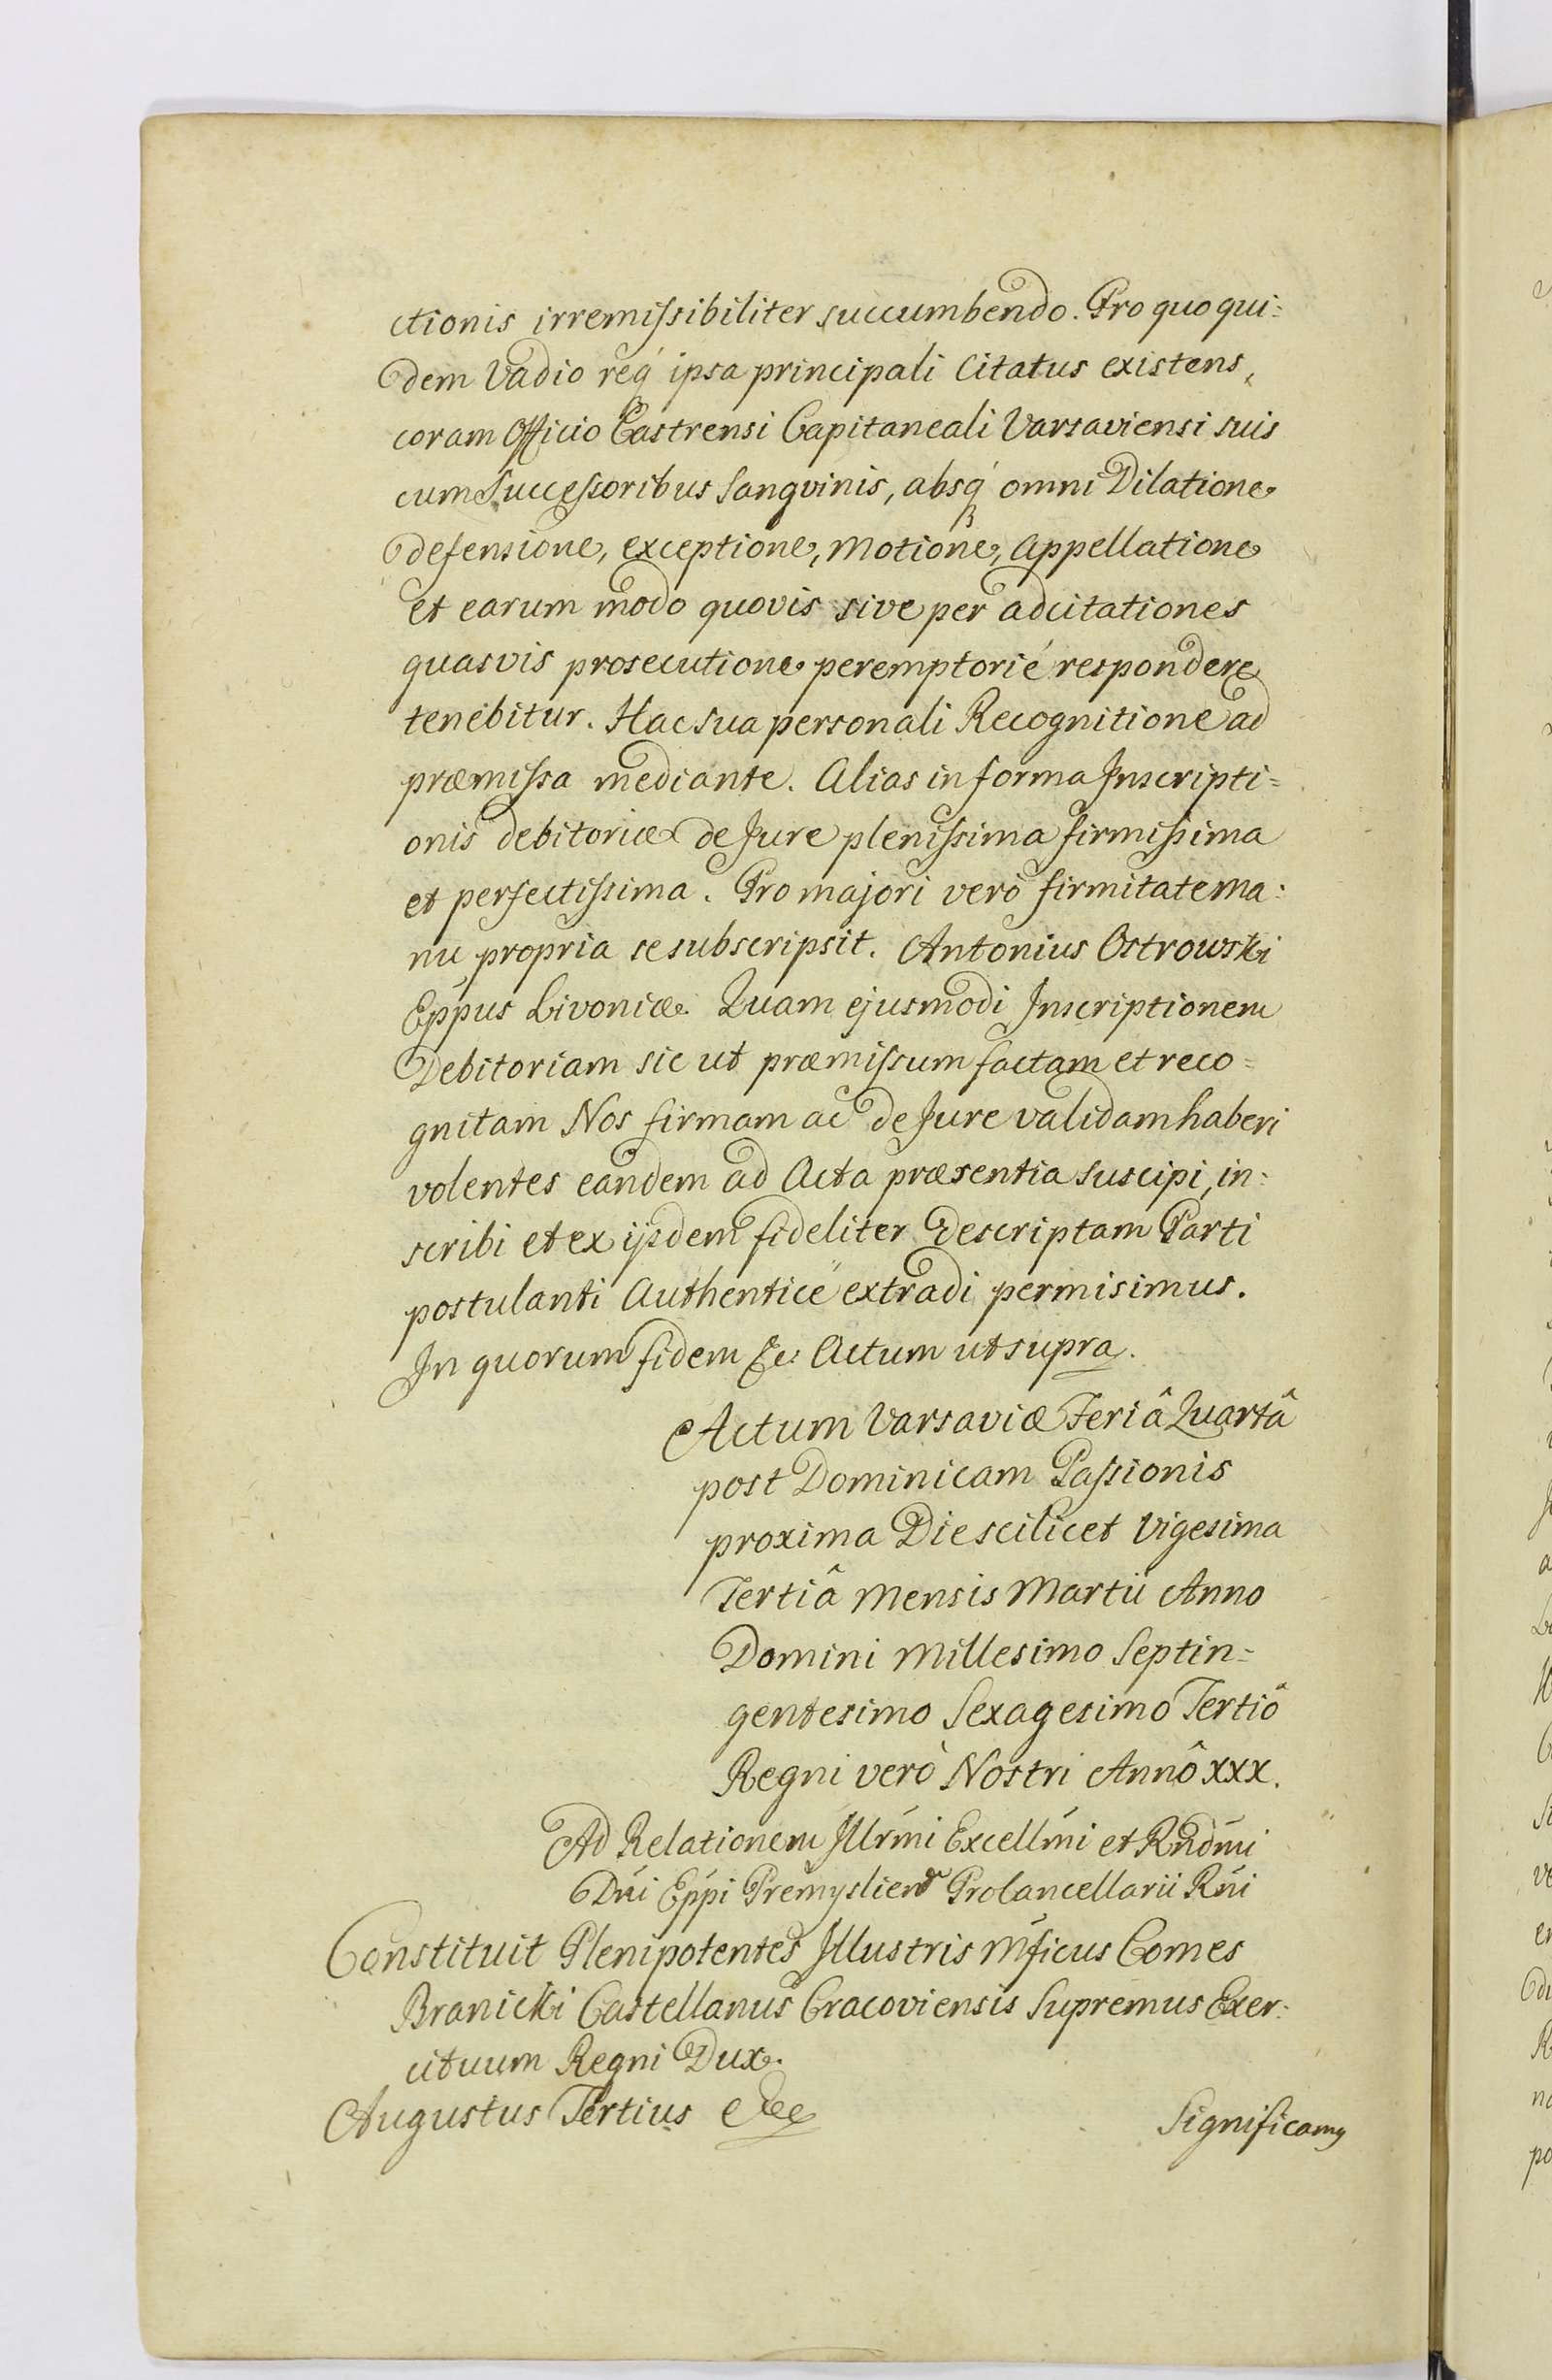 ctionis irremissibiliter succumbendo. Pro quo qui=
dem Vadio req́ ipsa principali Citatus existens,
coram Officio Castrensi Capitaneali Varsaviensi suis
cum Successoribus Sangvinis, absq́ omni Dilatione
defensione, exceptione, motione, appellatione
et earum modo quovis sive per adcitationes
quasvis prosecutione peremptorié respondere
tenebitur. Hac sua personali Recognitione ad
præmissa mediante. Alias in forma Inscripti=
onis debitoriæ de Jure plenissima firmissima
et perfectissima. Pro majori verò firmitate ma=
nu propria se subscripsit. Antonius Ostrowski
Eppus Livoniæ. Quam ejusmodi Inscriptionem
Debitoriam sic ut præmissum factam et reco=
gnitam Nos firmam ac de Jure validam haberi
volentes eandem ad Acta præsentia suscipi, in=
scribi et ex ijsdem fideliter descriptam Parti
postulanti Authenticé extradi permisimus.
In quorum fidem &c: Actum ut supra.
Actum Varsaviæ Feriâ Quartâ
post Dominicam Passionis
proxima Die scilicet Vigesima
Tertiâ Mensis Martii Anno
Domini Millesimo Septin=
gentesimo Sexagesimo Tertiô
Regni verò Nostri Annô XXX.
Ad Relationem Illrḿi Excellḿi et Rńdḿi
Dńi Eṕpi Premyslien̄ Procancellarii Rńi
Constituit Plenipotentes Illustris Mficus Comes
Branicki Castellanus Cracoviensis Supremus Exer=
cituum Regni Dux.
Augustus Tertius &c
Significamꝰ